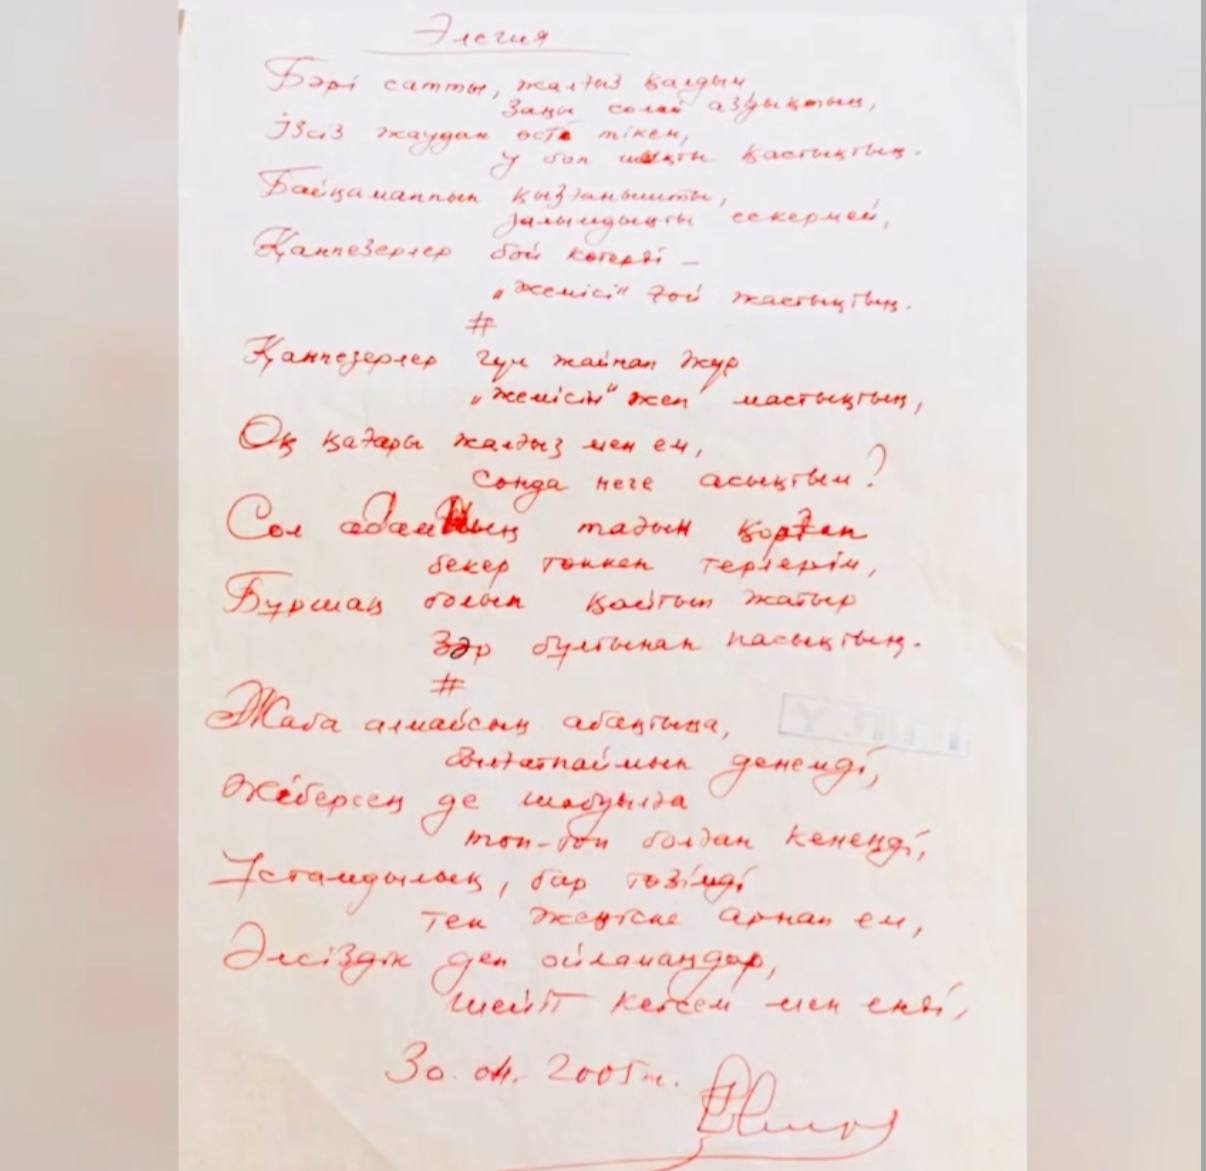 Элегия
Бәрі сатты, жалғыз қалдым
Заңы солай азғықтың,
Ізсіз жаудан өсті тікен,
У боп шықты қастықтың.
Байқамаппын қызғанышты,
Залымдықты ескермей,
Қанпезерлер бой көтерді –
„жемісі" ғой жастықтың.
#
Қанпезерлер гүл жайнап жүр
„жемісін" жеп мастықтың,
Оқ қадары жалғыз мен ем,
Сонда неге асықтым?
Сол адамның тағын қорғап
бекер төккен терлерім,
Бұршақ болып қайтып жатыр
Зәр бұлтынан пасықтың.
#
Жаба алмайсың абақтыңа,
денемді,
Жіберсең де шабуылға
топ-топ болған кенеңді,
Ұстамдылық, бар төзімді
тек жеңіске арнап ем,
Әлсіздік деп ойламаңдар,
шейіт кетсем мен енді,
30. 2005 ж.